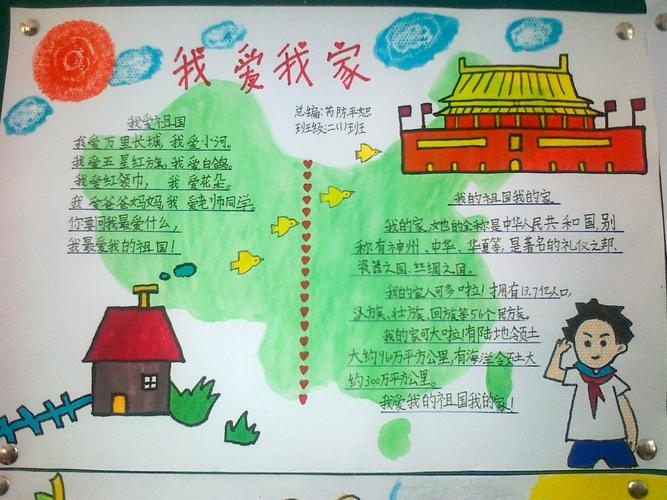 我爱我家
总编:芮陈平恕
班级:二(1)班
我爱祖国
我爱万里长城,我爱小河。
我爱五星红旗,我爱白鸽。
我爱红领巾,我爱花朵。
我爱爸爸妈妈我爱老师同学。
你要问我最爱什么,
我最爱我的祖国!
我的祖国我的家
我的家,她的全称是中华人民共和国,别
称有神州、中华、华夏等,是著名的礼仪之邦、
瓷器之国、丝绸之国。
我的家人可多啦!拥有13.7亿人口,
汉族、壮族、回族等56个民族。
我的家可大啦!有陆地领土
大约960万平方公里,有海洋领土大
约300万平方公里。
我爱我的祖国我的家!